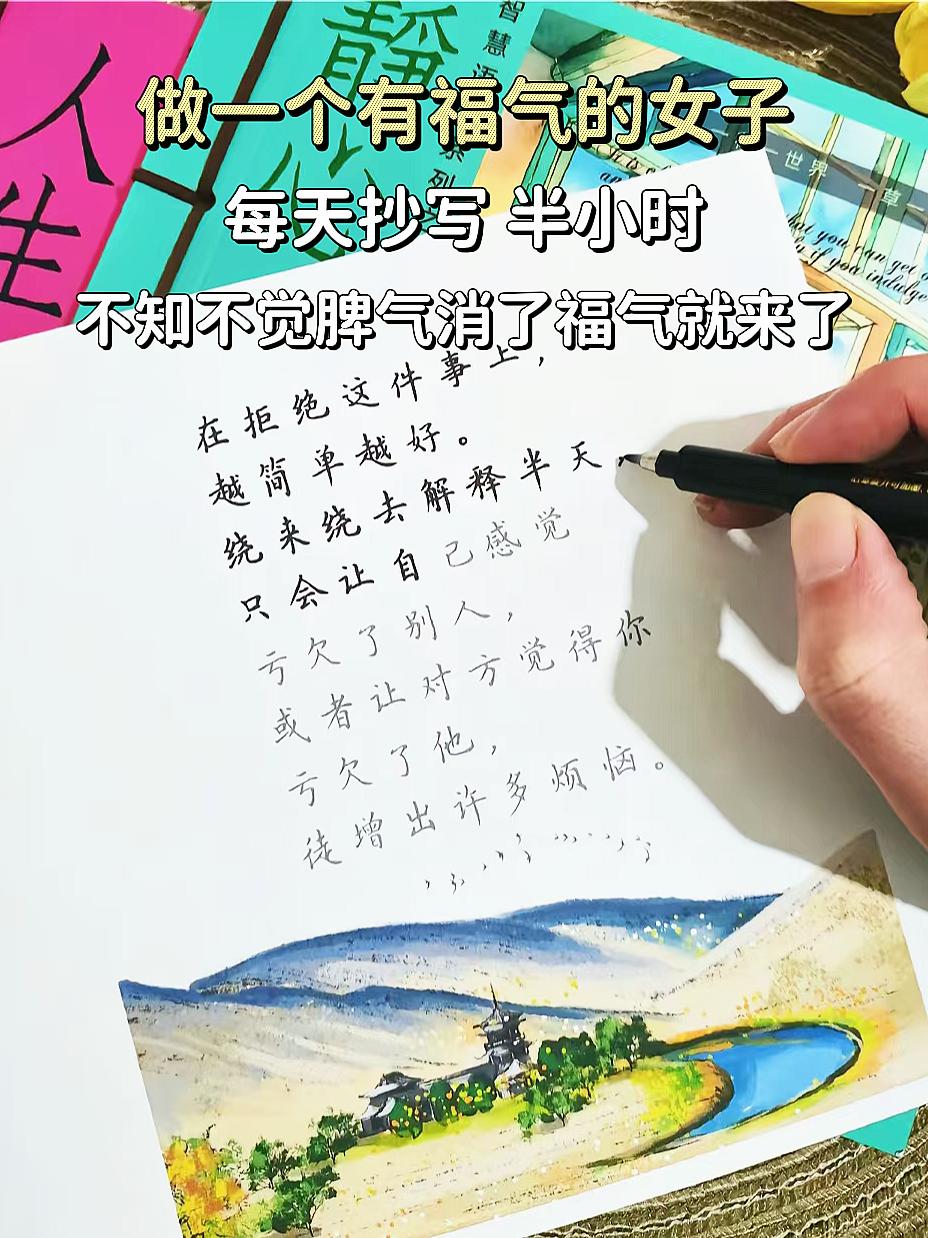 做一个有福气的女子
每天抄写 半小时
不知不觉脾气消了福气就来了
人生
静心
智慧语
系列
世界
草
在拒绝这件事上，
越简单越好。
绕来绕去解释半天
只会让自己感觉
亏欠了别人，
或者让对方觉得你
亏欠了他，
徒增出许多烦恼。